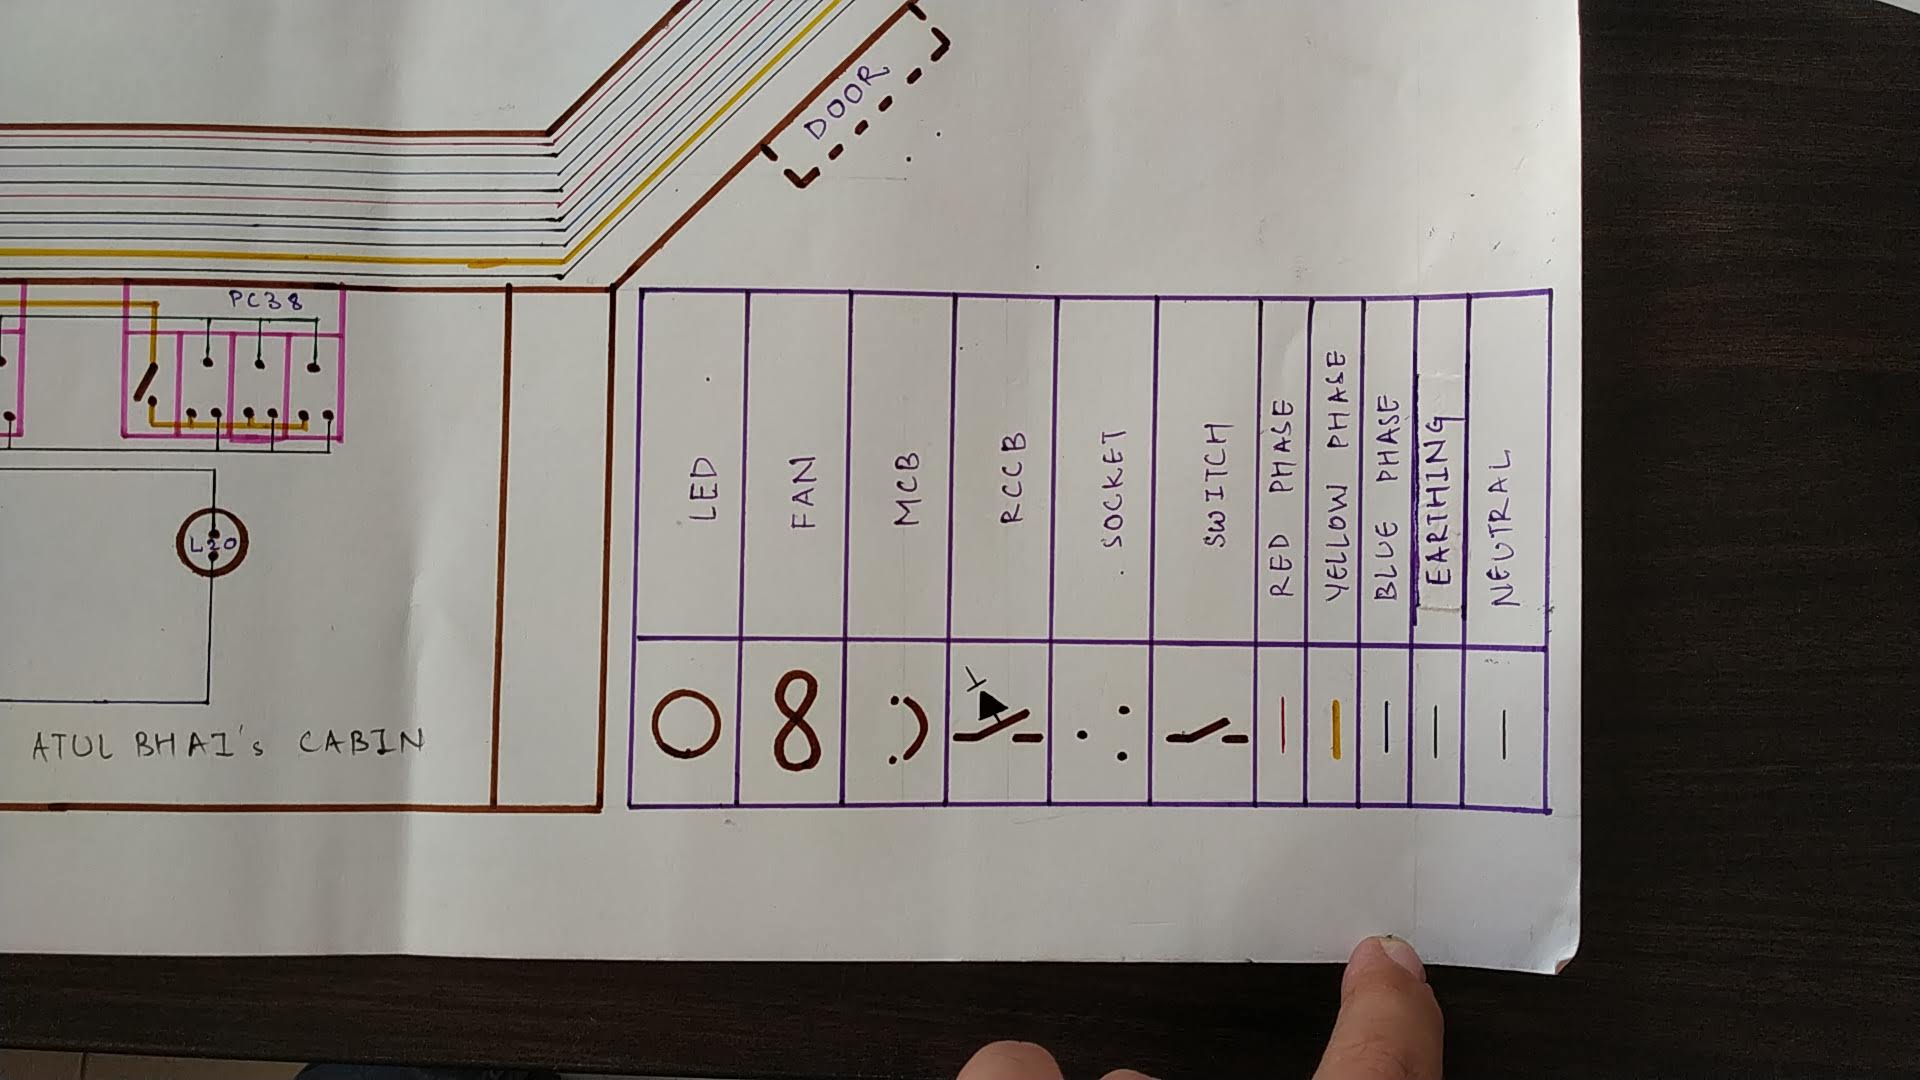 DOOR
PC38
L20
ATUL BHAI's CABIN
LED
FAN
MCB
RCCB
SOCKET
SWITCH
RED PHASE
YELLOW PHASE
BLUE PHASE
EARTHING
NEUTRAL